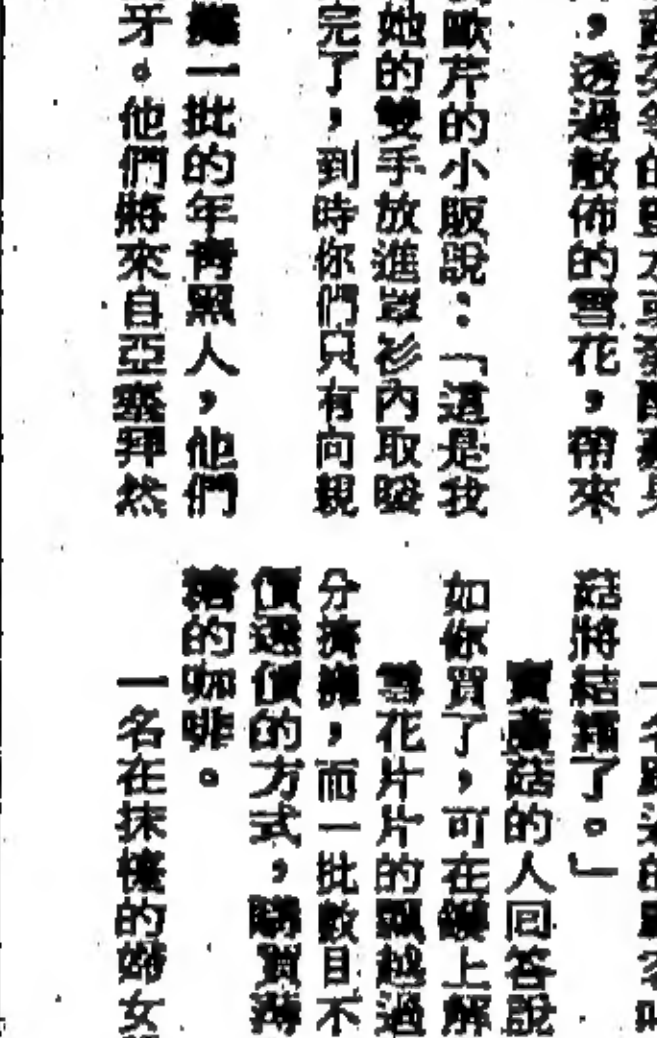 ，透過散佈的雪花，帶來
歐芹的小販說：「這是我
她的雙手放進羊衫內取暖
完了，到時你們只有向親
一批的年青黑人，他們
牙。他們將來自亞塞拜然
一名路過的顧客叫
菇將結凍了。」
賣蘑菇的人回答說
如你買了，可在爐上解
雪花片片的飄越過
分擠擁，而一批數目不
價還價的方式，購買
糖的咖啡。
一名在抹檯的婦女